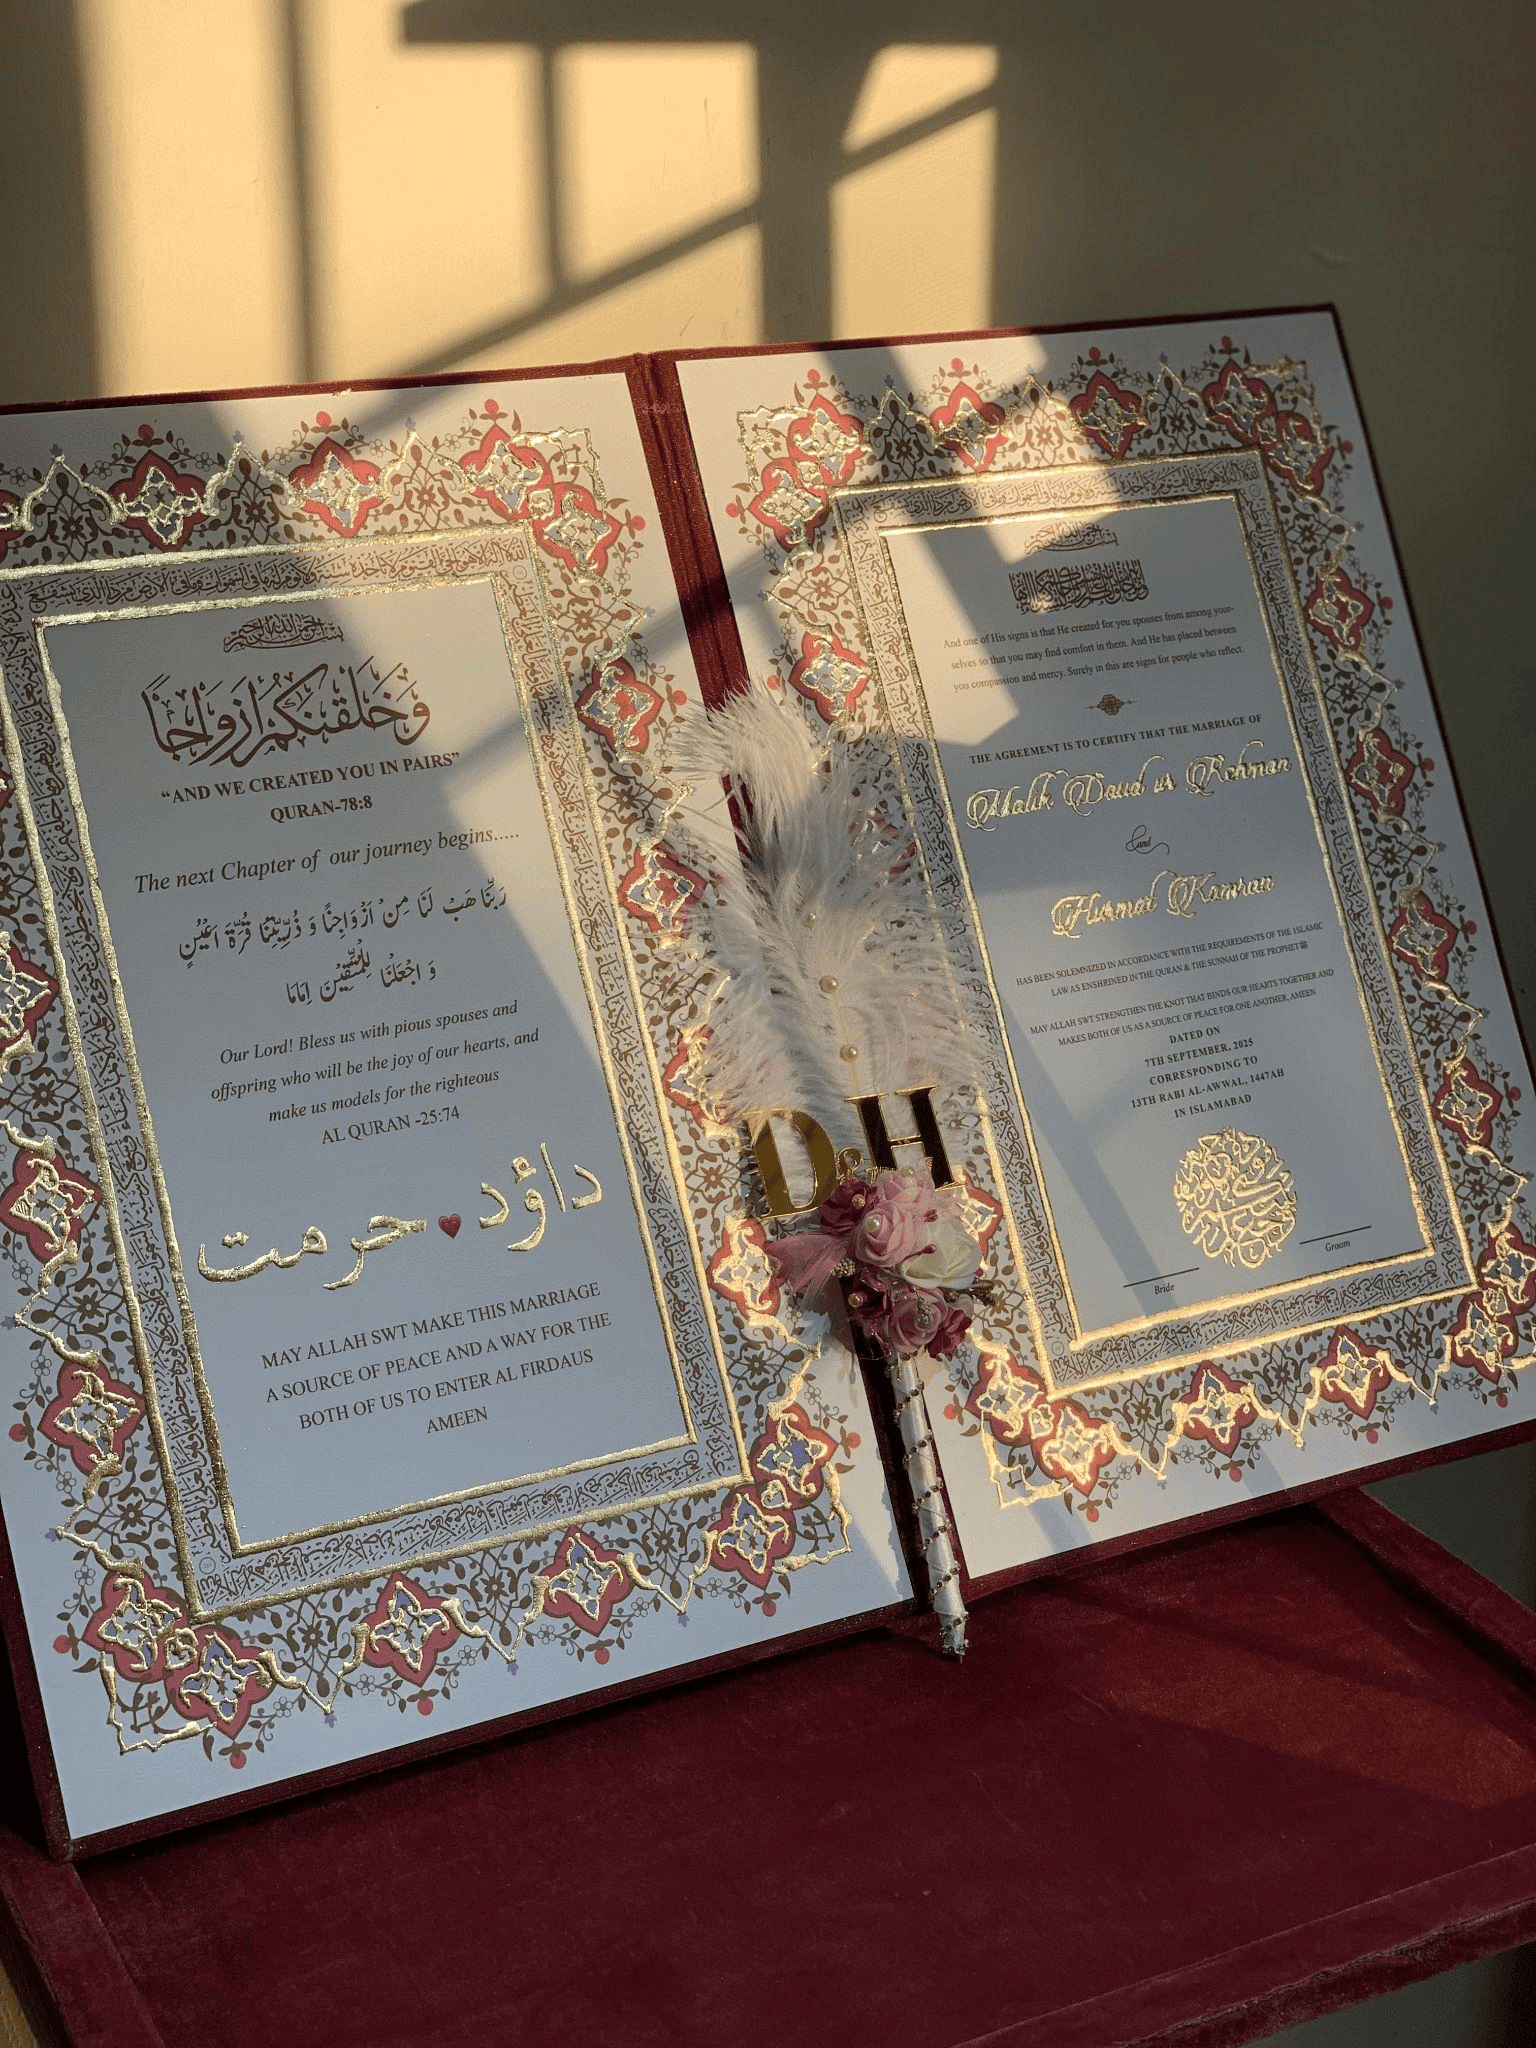 بسم الله الرحمن الرحيم
وَخَلَقْنَٰكُمْ أَزْوَاجًا
“AND WE CREATED YOU IN PAIRS”
QURAN-78:8
The next Chapter of our journey begins.....
رَبَّنَا هَبْ لَنَا مِنْ اَزْوَاجِنَا وَ ذُرِّيّٰتِنَا قُرَّةَ اَعْیُنٍ
وَ اجْعَلْنَا لِلْمُتَّقِیْنَ اِمَامًا
Our Lord! Bless us with pious spouses and
offspring who will be the joy of our hearts, and
make us models for the righteous
AL QURAN -25:74
داؤد ❤ حرمت
MAY ALLAH SWT MAKE THIS MARRIAGE
A SOURCE OF PEACE AND A WAY FOR THE
BOTH OF US TO ENTER AL FIRDAUS
AMEEN
D & H
بسم الله الرحمن الرحيم
And one of His signs is that He created for you spouses from among your-
selves so that you may find comfort in them. And He has placed between
you compassion and mercy. Surely in this are signs for people who reflect.
THE AGREEMENT IS TO CERTIFY THAT THE MARRIAGE OF
Malik Daud ur Rehman
and
Hurmat Kamran
HAS BEEN SOLEMNIZED IN ACCORDANCE WITH THE REQUIREMENTS OF THE ISLAMIC
LAW AS ENSHRINED IN THE QURAN & THE SUNNAH OF THE PROPHET ﷺ
MAY ALLAH SWT STRENGTHEN THE KNOT THAT BINDS OUR HEARTS TOGETHER AND
MAKES BOTH OF US AS A SOURCE OF PEACE FOR ONE ANOTHER, AMEEN
DATED ON
7TH SEPTEMBER, 2025
CORRESPONDING TO
13TH RABI AL-AWWAL, 1447AH
IN ISLAMABAD
Bride
Groom